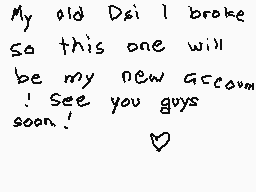 My old Dsi I broke
so this one will
be my new accoum
! See you guys
soon!